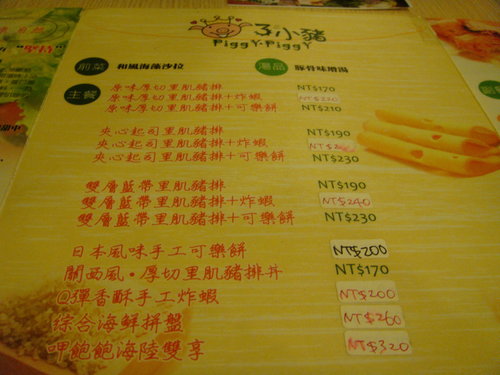 子小豬
PIGGY.PIGGY
前菜 和風海藻沙拉 湯品 豚骨味增湯
主餐
原味厚切里肌豬排 NT$170
原味厚切里肌豬排+炸蝦 NT$220
原味厚切里肌豬排+可樂餅 NT$210
夾心起司里肌豬排 NT$190
夾心起司里肌豬排+炸蝦
夾心起司里肌豬排+可樂餅 NT$230
雙層藍帶里肌豬排 NT$190
雙層藍帶里肌豬排+炸蝦 NT$240
雙層藍帶里肌豬排+可樂餅 NT$230
日本風味手工可樂餅 NT$200
關西風·厚切里肌豬排丼 NT$170
Q彈香酥手工炸蝦 NT$200
綜合海鮮拼盤 NT$260
呷飽飽海陸雙享 NT$320